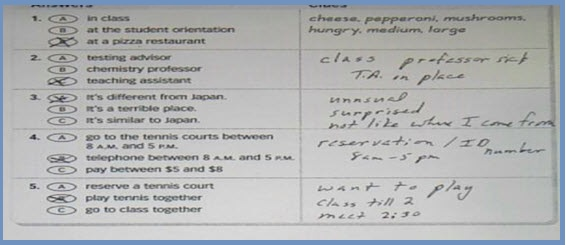 Answers Clues
1. A in class
B at the student orientation
at a pizza restaurant
cheese, pepperoni, mushrooms,
hungry, medium, large
2. A testing advisor
B chemistry professor
teaching assistant
class professor sick
T.A. in place
3. It's different from Japan.
B It's a terrible place.
C It's similar to Japan.
unusual
surprised
not like where I come from
4. A go to the tennis courts between
8 A.M. and 5 P.M.
telephone between 8 A.M. and 5 P.M.
C pay between $5 and $8
reservation / ID number
8am - 5 pm
5. A reserve a tennis court
play tennis together
C go to class together
want to play
class till 2
meet 2:30